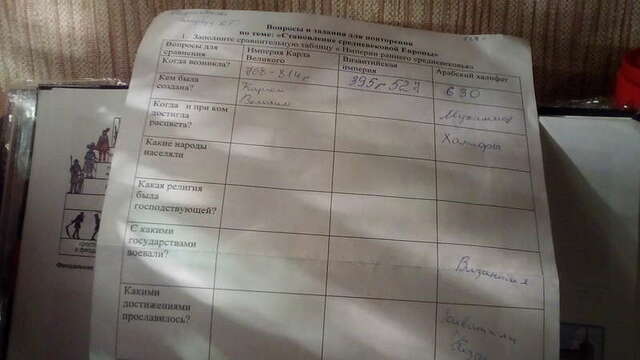 Вопросы и задания для повторения
по теме: «Становление средневековой Европы»
1. Заполните сравнительную таблицу « Империи раннего средневековья»
Вопросы для сравнения
Империя Карла Великого
Византийская империя
Арабский халифат
Когда возникла?
768-814г
395г.
630
Кем была создана?
Карлом Великим
Мухаммед
Когда и при ком достигла расцвета?
Халифы
Какие народы населяли
Какая религия была господствующей?
С какими государствами воевали?
Византия
Какими достижениями прославилось?